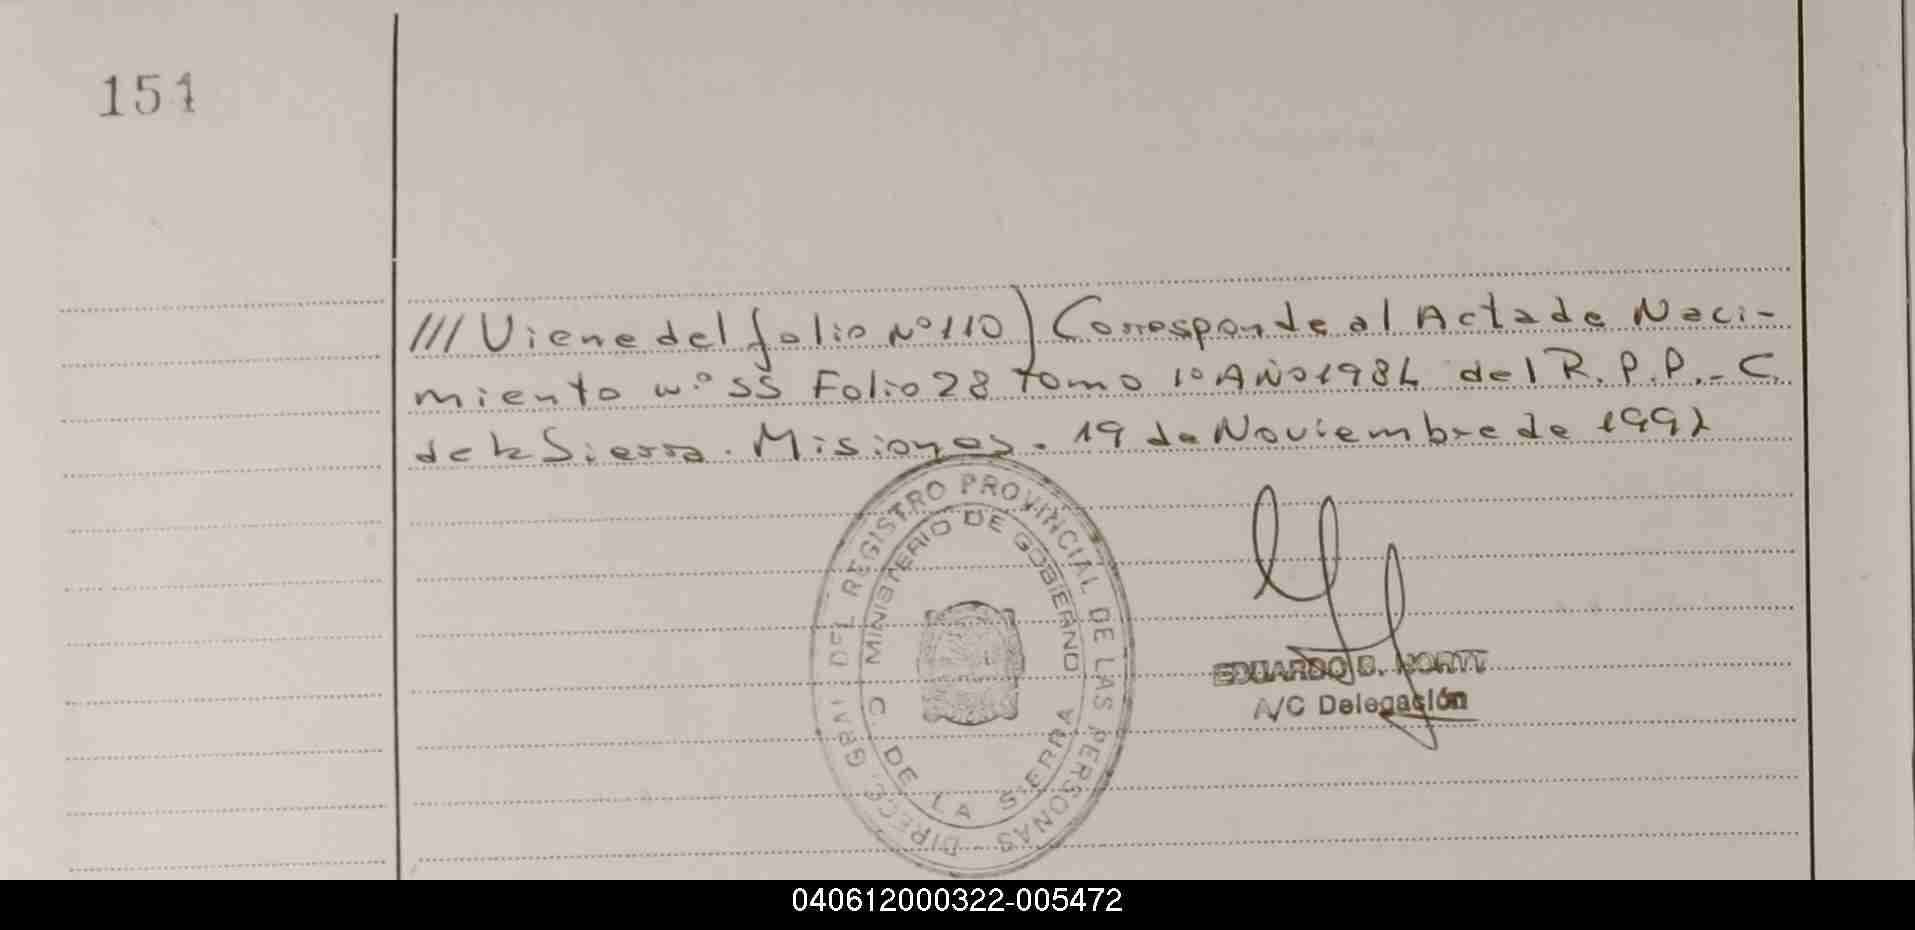 151
/// Viene del folio Nº 110) Corresponde al Acta de Naci-
miento nº 55 Folio 28 tomo 1º AÑO 1984 del R.P.P.- C.
de la Sierra. Misiones. 19 de Noviembre de 1992
DIREC. GRAL DEL REGISTRO PROVINCIAL DE LAS PERSONAS -
MINISTERIO DE GOBIERNO
C. DE LA SIERRA
EDUARDO D.
A/C Delegación
040612000322-005472